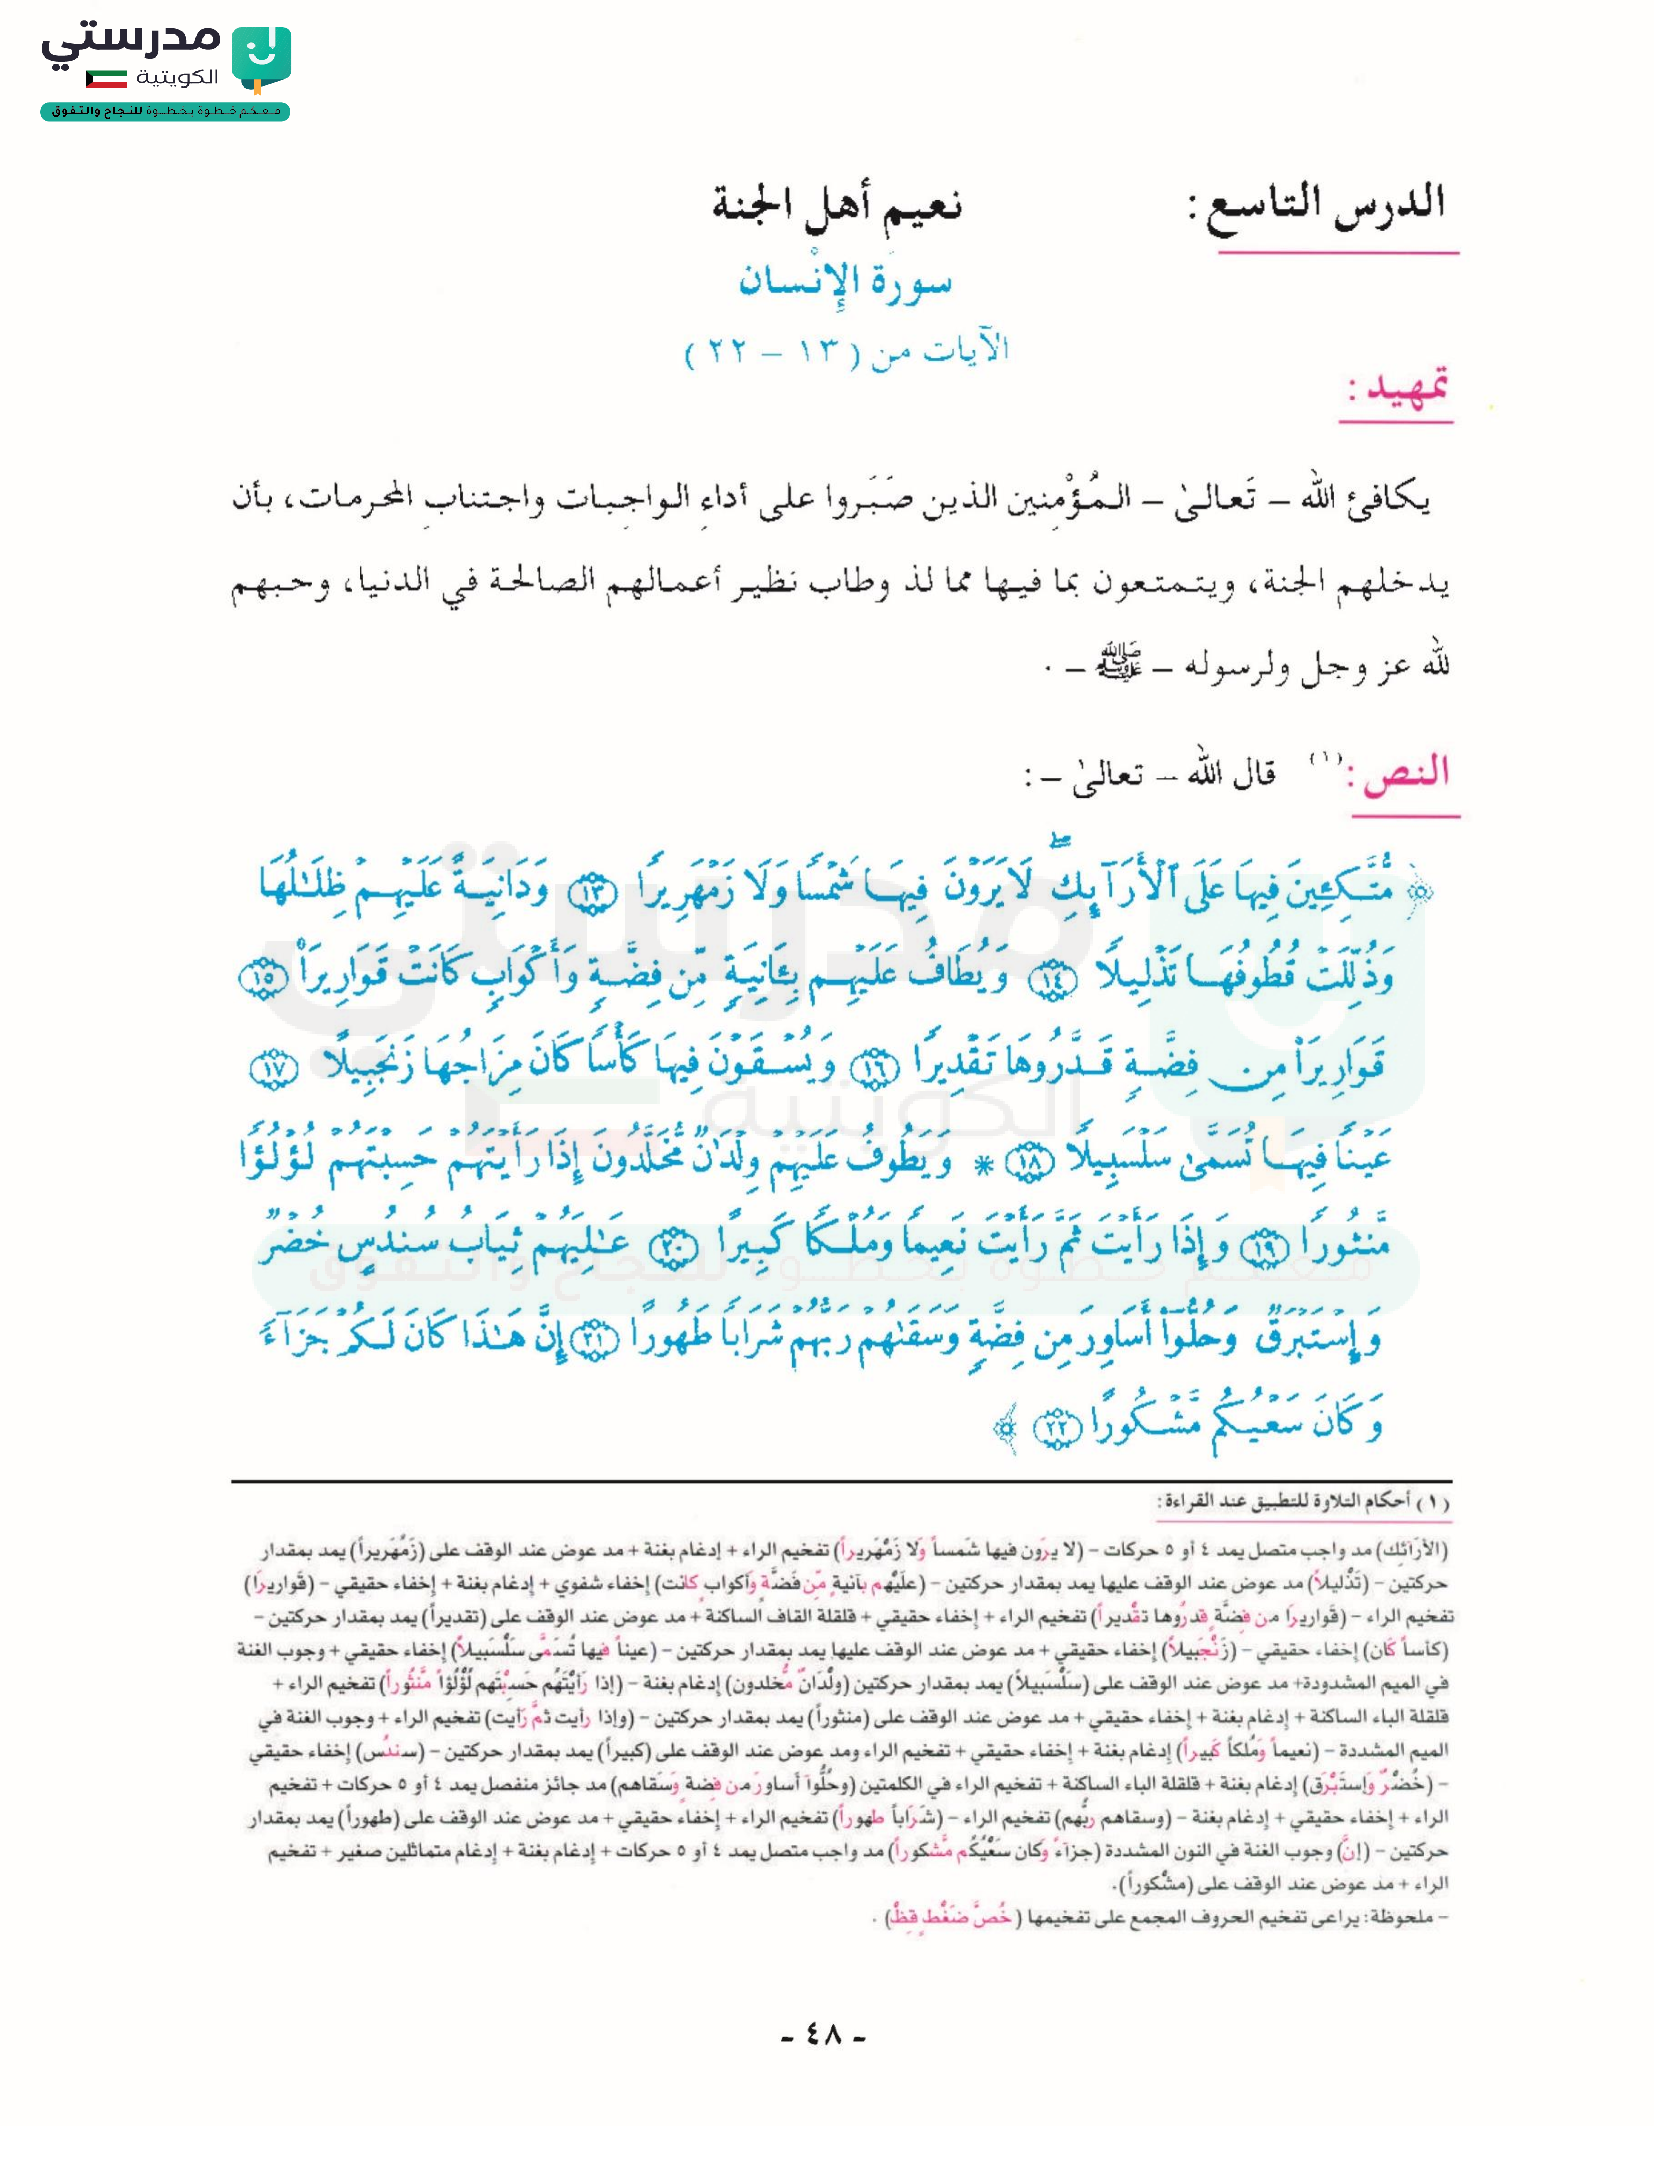 مدرستي
الكويتية
معكم خطوة بخطوة للنجاح والتفوق
الدرس التاسع : نعيم أهل الجنة
سورة الإنسان
الآيات من ( ١٣ – ٢٢ )
تمهيد :
يكافئ الله – تَعالىٰ – المُؤْمِنين الذين صَبَروا على أداءِ الواجِبات واجتنابِ المحرمات، بأن
يدخلهم الجنة، ويتمتعون بما فيها مما لذ وطاب نظير أعمالهم الصالحة في الدنيا، وحبهم
لله عز وجل ولرسوله – ﷺ – .
النص :(١) قال الله – تعالىٰ – :
﴿ مُّتَّكِـِٔينَ فِيهَا عَلَى ٱلْأَرَآئِكِ ۖ لَا يَرَوْنَ فِيهَا شَمْسًا وَلَا زَمْهَرِيرًا ١٣ وَدَانِيَةً عَلَيْهِمْ ظِلَٰلُهَا
وَذُلِّلَتْ قُطُوفُهَا تَذْلِيلًا ١٤ وَيُطَافُ عَلَيْهِم بِـَٔانِيَةٍ مِّن فِضَّةٍ وَأَكْوَابٍ كَانَتْ قَوَارِيرَا۠ ١٥
قَوَارِيرَا۟ مِن فِضَّةٍ قَدَّرُوهَا تَقْدِيرًا ١٦ وَيُسْقَوْنَ فِيهَا كَأْسًا كَانَ مِزَاجُهَا زَنجَبِيلًا ١٧
عَيْنًا فِيهَا تُسَمَّىٰ سَلْسَبِيلًا ١٨ * وَيَطُوفُ عَلَيْهِمْ وِلْدَٰنٌ مُّخَلَّدُونَ إِذَا رَأَيْتَهُمْ حَسِبْتَهُمْ لُؤْلُؤًا
مَّنثُورًا ١٩ وَإِذَا رَأَيْتَ ثَمَّ رَأَيْتَ نَعِيمًا وَمُلْكًا كَبِيرًا ٢٠ عَٰلِيَهُمْ ثِيَابُ سُندُسٍ خُضْرٌ
وَإِسْتَبْرَقٌ وَحُلُّوٓا۟ أَسَاوِرَ مِن فِضَّةٍ وَسَقَىٰهُمْ رَبُّهُمْ شَرَابًا طَهُورًا ٢١ إِنَّ هَٰذَا كَانَ لَكُمْ جَزَآءً
وَكَانَ سَعْيُكُم مَّشْكُورًا ٢٢ ﴾
( ١ ) أحكام التلاوة للتطبيق عند القراءة :
(الأرَائِك) مد واجب متصل يمد ٤ أو ٥ حركات – (لا يرَون فيها شَمساً وَلا زَمْهَريراً) تفخيم الراء + إدغام بغنة + مد عوض عند الوقف على (زَمْهَريراً) يمد بمقدار
حركتين – (تَذْليلاً) مد عوض عند الوقف عليها يمد بمقدار حركتين – (علَيْهم بآنية مِّن فَضَّة وَأكواب كانت) إخفاء شفوي + إدغام بغنة + إخفاء حقيقي – (قَواريرَا)
تفخيم الراء – (قَواريرَا من فضَّة قدرُوها تقْديراً) تفخيم الراء + إخفاء حقيقي + قلقلة القاف الساكنة + مد عوض عند الوقف على (تقديراً) يمد بمقدار حركتين –
(كأساً كَان) إخفاء حقيقي – (زَنْجَبيلاً) إخفاء حقيقي + مد عوض عند الوقف عليها يمد بمقدار حركتين – (عيناً فيها تُسَمَّى سَلْسَبيلاً) إخفاء حقيقي + وجوب الغنة
في الميم المشدودة+ مد عوض عند الوقف على (سَلْسَبيلاً) يمد بمقدار حركتين (ولْدَانٌ مُّخلدون) إدغام بغنة – (إذا رَأيْتَهُم حَسِبْتَهم لُؤْلُؤاً مَّنْثُوراً) تفخيم الراء +
قلقلة الباء الساكنة + إدغام بغنة + إخفاء حقيقي + مد عوض عند الوقف على (منثوراً) يمد بمقدار حركتين – (وإذا رأيت ثمَّ رَأيت) تفخيم الراء + وجوب الغنة في
الميم المشددة – (نعيماً وَمُلكاً كَبيراً) إدغام بغنة + إخفاء حقيقي + تفخيم الراء ومد عوض عند الوقف على (كبيراً) يمد بمقدار حركتين – (سندُس) إخفاء حقيقي
– (خُضْرٌ وَإستَبْرَق) إدغام بغنة + قلقلة الباء الساكنة + تفخيم الراء في الكلمتين (وحُلُّوآ أساورَ من فضة وَسَقاهم) مد جائز منفصل يمد ٤ أو ٥ حركات + تفخيم
الراء + إخفاء حقيقي + إدغام بغنة – (وسقاهم ربُّهم) تفخيم الراء – (شَرَاباً طهوراً) تفخيم الراء + إخفاء حقيقي + مد عوض عند الوقف على (طهوراً) يمد بمقدار
حركتين – (إنَّ) وجوب الغنة في النون المشددة (جزآءً وَكان سَعْيُكُم مَّشكوراً) مد واجب متصل يمد ٤ أو ٥ حركات + إدغام بغنة + إدغام متماثلين صغير + تفخيم
الراء + مد عوض عند الوقف على (مشْكوراً).
– ملحوظة: يراعى تفخيم الحروف المجمع على تفخيمها ( خُصَّ ضَغْطٍ قِظْ) .
- ٤٨ -